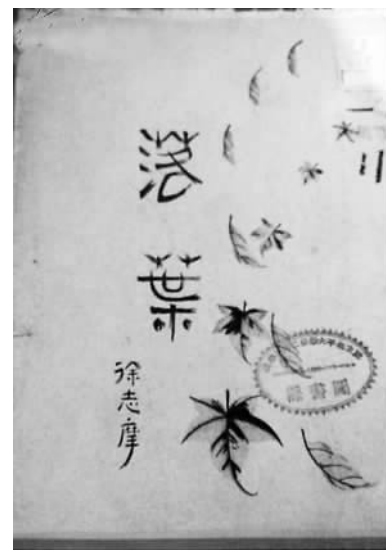 落葉
徐志摩
圖書館